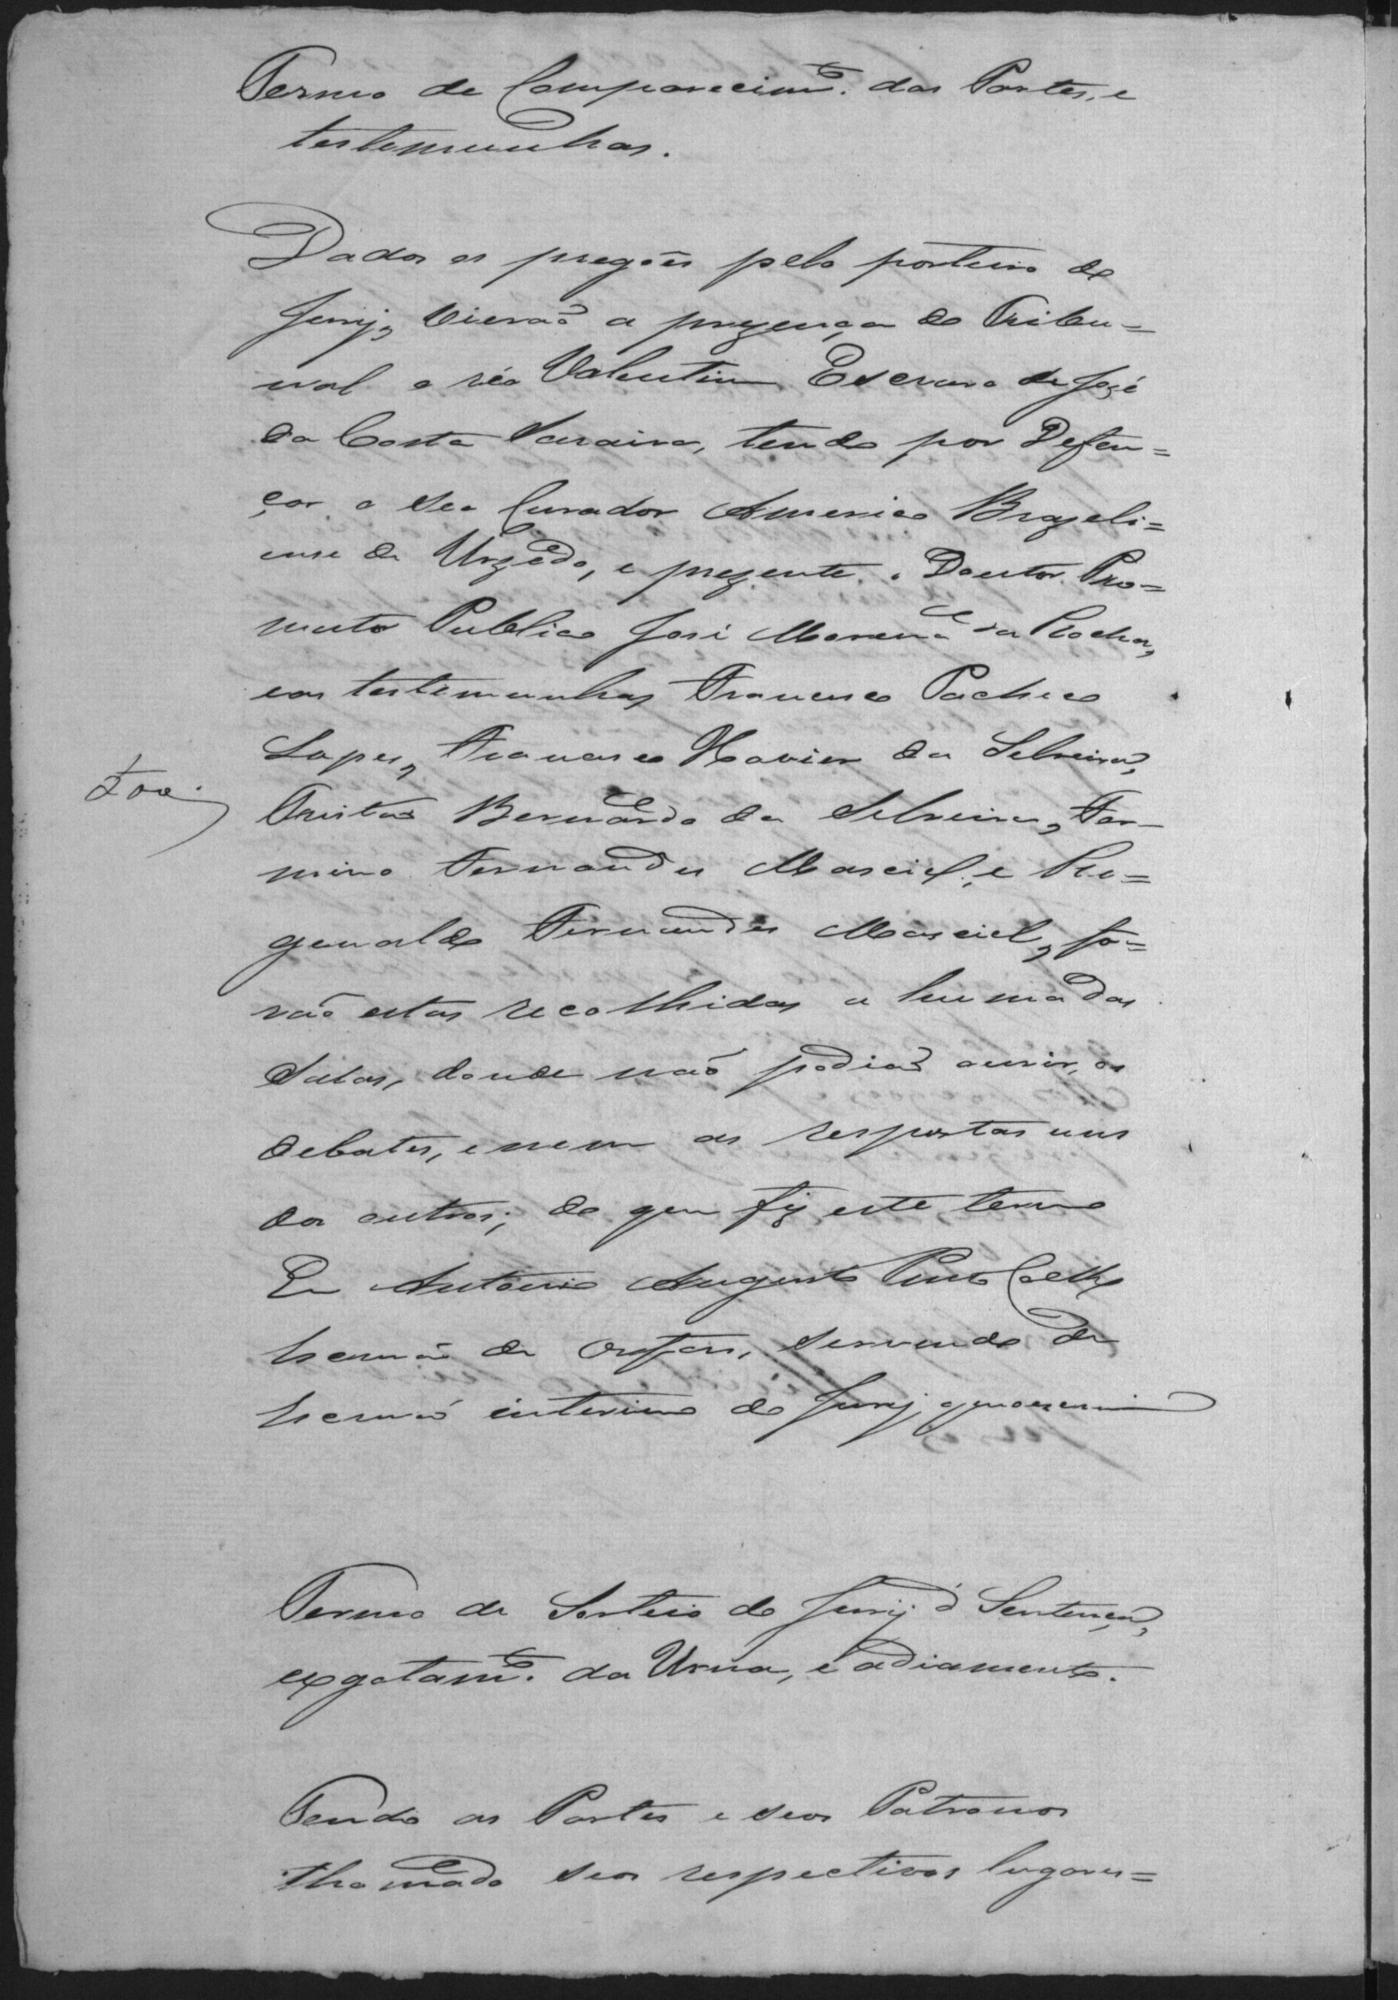 Termo de Comparecimto. das Partes, e
testemunhas.
Dados os pregões pelo porteiro do
Jury, vierão a prezença do Tribu=
nal o réo Valentim Escravo de José
da Costa Saraiva, tendo por Defen=
çor o seo Curador Americo Brazili=
ense de Urzedo, e prezente o Doutor Pro=
motor Publico José Moreira da Rocha,
eas testemunhas Francisco Pacheco
Lopes, Francisco Xavier da Silveira,
Tristão Bernardo da Silveira, Fir-
mino Fernandes Maciel, e Ro=
gonaldo Fernandes Maciel, fo=
rão estas recolhidas a huma das
Salas, donde não podião ouvir, os
debates, e nem as respostas uns
dos outros; do que fiz este termo
Eu Antonio Augusto Pinto Coelho
Escrivão de Orfãos, servindo de
Escrivão interino do Jury, que escrevi
Termo de Sorteio do Jury d Sentença,
exgotamto. da Urna, e adiamento.
Tendo as Partes e seos Patronos
thomado seos respectivos lugares=